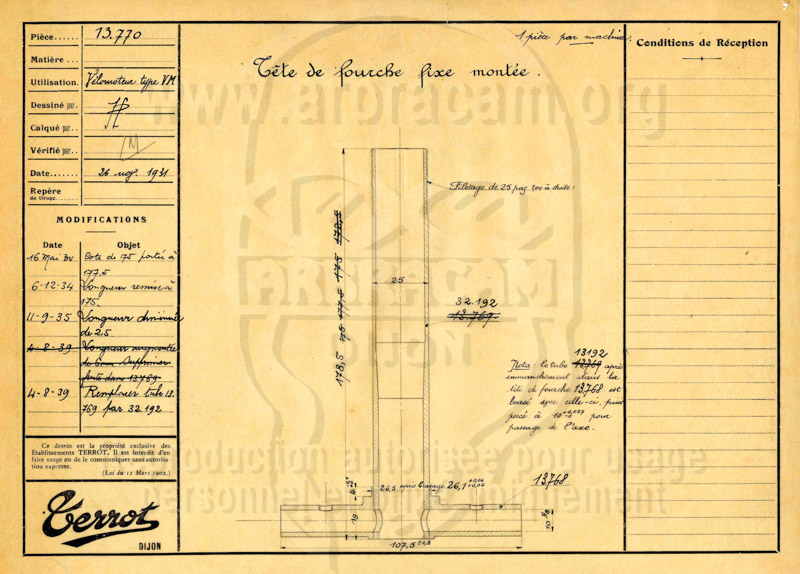 Pièce...... 13.770
Matière ...
Utilisation. Vélomoteur type VM
Dessiné par.
Calqué par..
Vérifié par.. M
Date....... 26 nov. 1931
Repère
de tirage.........
MODIFICATIONS
Date Objet
16 Mai 34 Cote de 175 portée à
177,5
6-12-34 Longueur remise à
175.
11-9-35 Longueur diminuée
de 2,5.
4-8-39 Longueur augmentée
de 6mm. Supprimer
13769.
4-8-39 Remplacer tube 13.
769 par 32.192
Ce dessin est la propriété exclusive des
Etablissements TERROT. Il est interdit d'en
faire usage ou de le communiquer sans autorisa
tion expresse.
(Loi du 11 Mars 1902.)
Terrot
DIJON
1 pièce par machine.
Tête de fourche fixe montée.
Filetage de 25 pas 100 à droite.
178,5 175 177,5 175 172,5
25
32.192
13.769.
13192
Nota: le tube 13769 après
emmanchement dans la
tête de fourche 13768 est
brasé avec celle-ci, puis
percé à 10 +0,027 pour
passage de l'axe.
26,5 après brasage 26,1
13768
19
107,5
Conditions de Réception
www.arbracam.org
ARBRACAM
DIJON
Reproduction autorisée pour usage
personnel